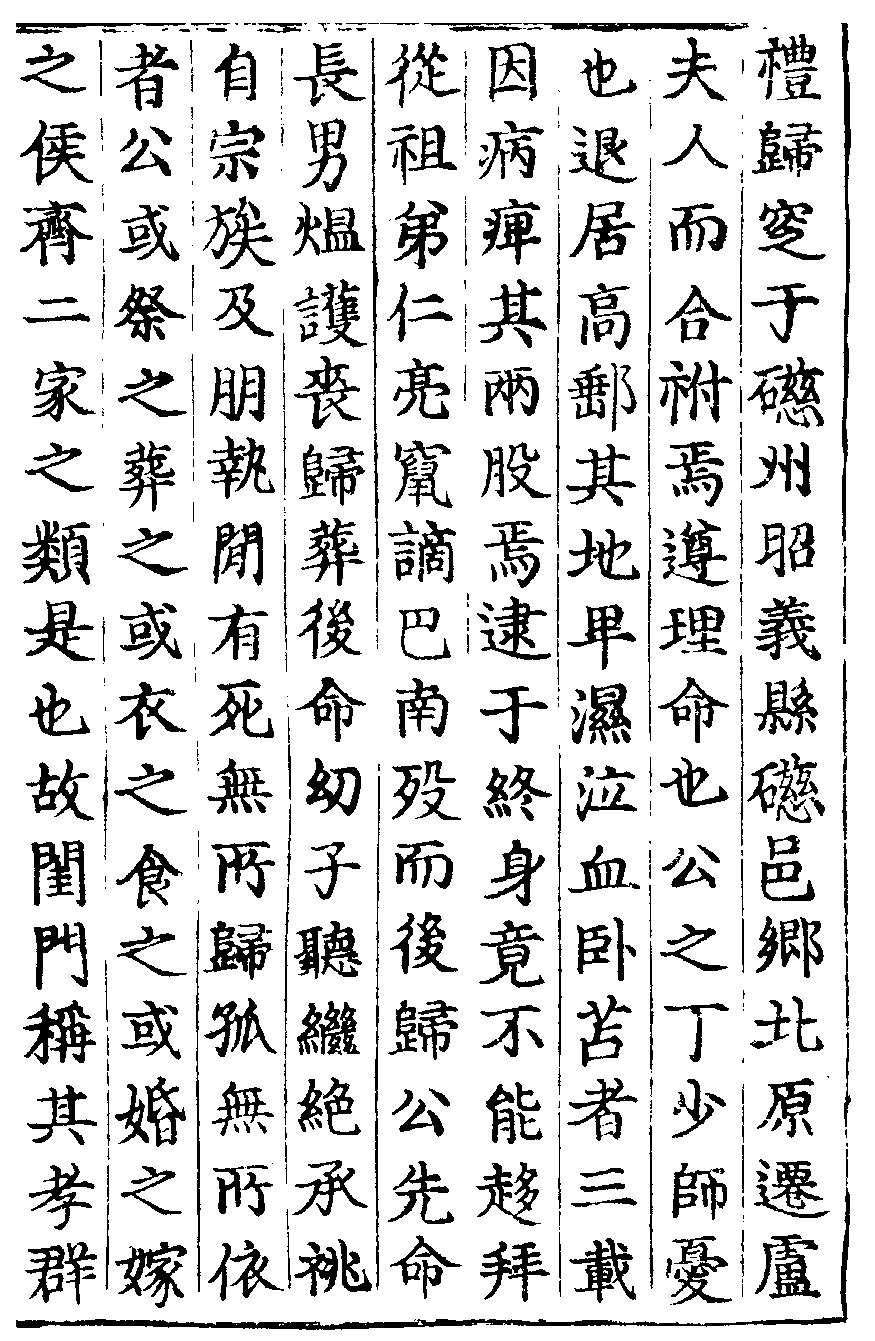 禮歸窆于磁州昭義縣磁邑鄉北原遷盧
夫人而合祔焉遵理命也公之丁少師憂
也退居高郵其地卑濕泣血卧苫者三載
因病痺其兩股焉逮于終身竟不能趍拜
從祖弟仁亮竄謫巴南歿而後歸公先命
長男熅護喪歸葬後命幼子聽繼絶承祧
自宗族及朋執閒有死無所歸孤無所依
者公或祭之葬之或衣之食之或婚之嫁
之侯齊二家之類是也故閨門稱其孝群